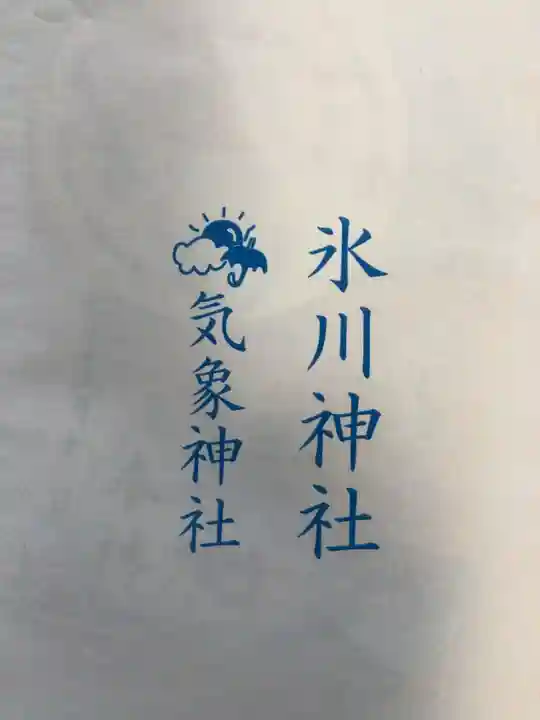 氷川神社
気象神社